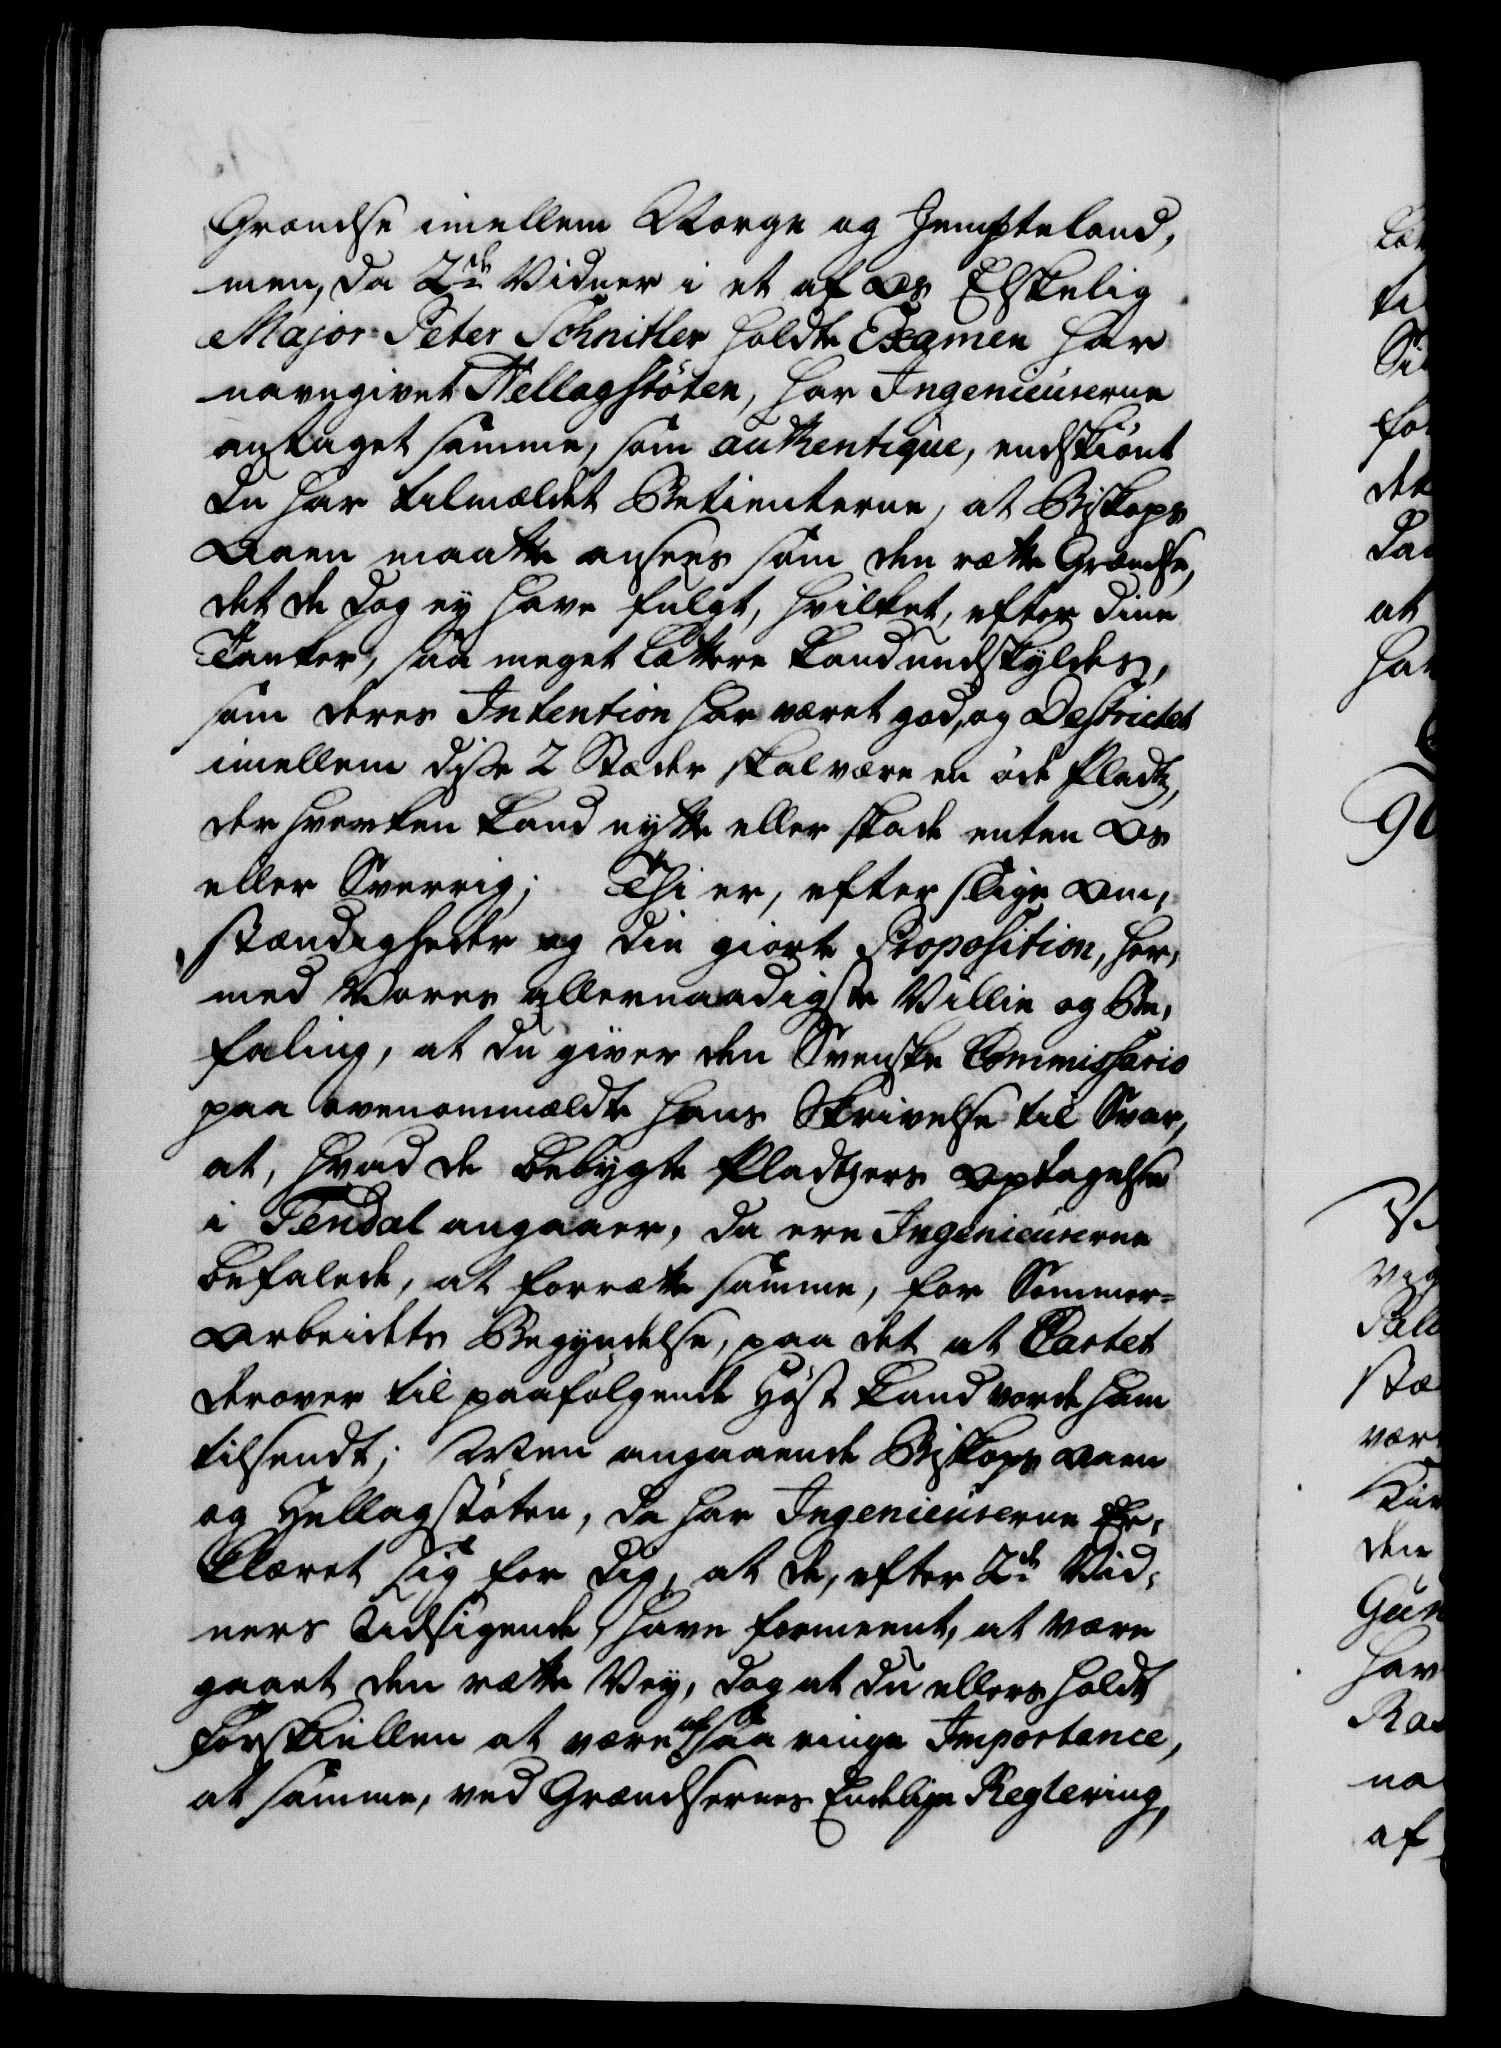 Grændse imellem Norge og Jempteland,
men, da 2de Vidner i et af Os Elskelig
Major Peter Schnitler holdte Examen har
navngivet Hellagstöten, har Ingenieurerne
antaget samme, som authentique, endskiönt
du har tilmældet Betienterne, at Biskops
Aaen maatte ansees som den rætte Grændse,
det de dog ey have fulgt, hvilket, efter dine
Tanker, saa meget lættere kand undskyldes,
som deres Intention har været god, og Destrictet
imellem disse 2 Stæder skal være en öde Pladtz,
der hverken kand nytte eller skade enten Os
eller Sverrig; Thi er, efter slige Om,
stændigheder og din giorte Proposition, her,
med Vores allernaadigste Villie og Be,
faling, at du giver den Svenske Commissario
paa ovenommældte hans Skrivelse til Svar,
at, hvad de bebygte Pladtzers Optagelse
i Tendal angaaer, da ere Ingenieurerne
befalede, at forrætte samme, for Sommer=
Arbeidets Begyndelse, paa det at Cartet
derover til paafölgende Höst kand vorde ham
tilsendt; Men angaaende Biskops Aaen
og Hellagstöten, da har Ingenieurerne er,
klæret sig for dig, at de, efter 2de Vid,
ners Udsigende, have formeent, at være
gaaet den rætte Vey, dog at du ellers holdt
Forskiellen at være af saa ringe Importance,
at samme, ved Grændsernes Endelige Reglering,